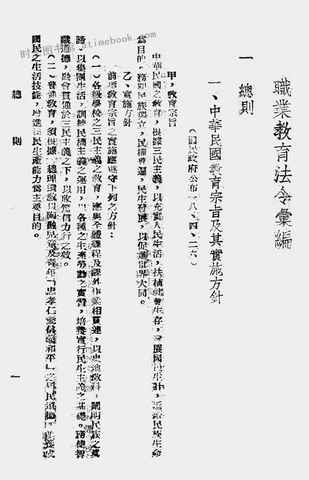 職業教育法令彙編
一 總則
一、中華民國教育宗旨及其實施方針
（國民政府公布一八、四、二六）
甲，教育宗旨
中華民國之教育，根據三民主義，以充實人民生活，扶植社會生存，發展國民生計，延續民族生命
為目的，務期民族獨立，民權普遍，民生發展，以促進世界大同。
乙，實施方針
前項教育宗旨之實施應遵守下列之方針：
（一）各級學校之三民主義之教育，應與全體課程及課外作業相貫連，以史地教科，闡明民族之真
諦，以集團生活，訓練民權主義之運用，以各種之生產勞動之實習，培養實行民生主義之基礎。務使智
識道德，融會貫通於三民主義之下，以收篤信力行之效。
（二）普通教育，須根據 總理遺教以陶融兒童及青年「忠孝仁愛信義和平」之國民道德，並養成
國民之生活技能，增進國民生產能力為主要目的。
總 則
一